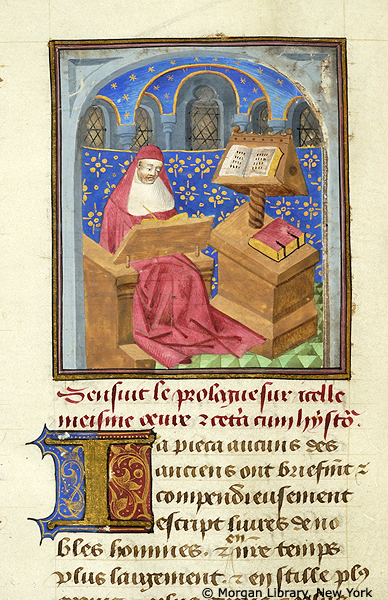 Sensuit le prologue sur icelle
meisme œuvre ⁊ cetã cum hysto.
Ia pieca aucuns des
anciens ont briefmt ⁊
compendieusement
escript liures de no
bles hommes. ⁊ en nr̃e temps
plus largement. ⁊ en stille plꝰ
© Morgan Library, New York